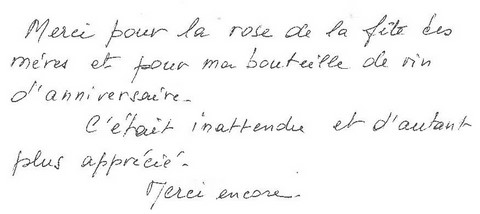 Merci pour la rose de la fête des
mères et pour ma bouteille de vin
d'anniversaire.
C'était inattendu et d'autant
plus apprécié.
Merci encore.